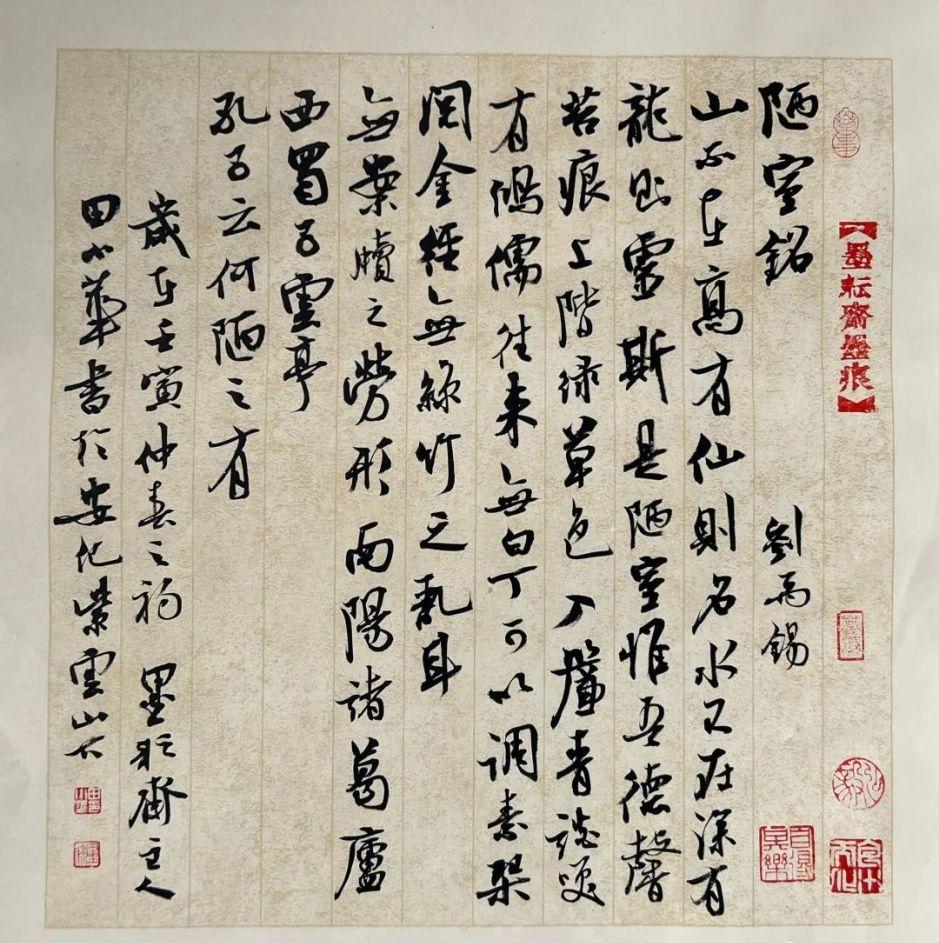 【墨耘齋墨痕】
陋室銘 劉禹錫
山不在高有仙則名水不在深有
龍則靈斯是陋室惟吾德馨
苔痕上階綠草色入簾青談笑
有鴻儒往來無白丁可以調素琴
閱金經無絲竹之亂耳
無案牘之勞形南陽諸葛廬
西蜀子雲亭
孔子云何陋之有
歲在壬寅仲春之初 墨耘齋主人
田小華書於安化紫雲山下